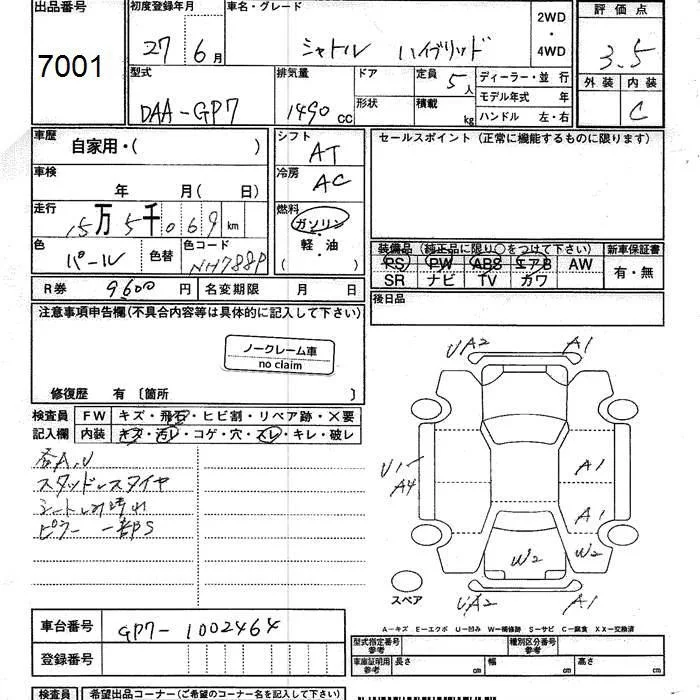 出品番号
7001
初度登録年月
27年6月
車名・グレード
シャトル ハイブリッド
2WD
・
4WD
評価点
3.5
外装 内装
C
型式
DAA-GP7
排気量
1490 cc
ドア
形状
定員
5人
積載
kg
ディーラー・並行
モデル年式 年
ハンドル 左・右
車歴
自家用・( )
シフト
AT
セールスポイント(正常に機能するものに限ります)
車検
年 月( 日)
冷房
AC
走行
15万5千069 km
燃料
ガソリン・
軽・油
( )
色
パール
色替
色コード
NH788P
装備品(純正品に限り○をつけて下さい)
PS PW ABS エアB AW
SR ナビ TV ガワ
新車保証書
有・無
R券 9600円
名変期限 月 日
後日品
注意事項申告欄(不具合内容等は具体的に記入して下さい)
ノークレーム車
no claim
修復歴 有〔箇所 〕
検査員
記入欄
FW キズ・飛石・ヒビ割・リペア跡・×要
内装 キズ・汚レ・コゲ・穴・スレ・キレ・破レ
各A,U
スタッドレスタイヤ
シート
ピラー 一部PS
UA2 A1
U1
A4
A1
A1
W2
W2
UA2 A1
スペア
A-キズ E-エクボ U-凹み W-補修跡 S-サビ C-腐食 XX-交換済
車台番号
GP7-1002464
登録番号
型式指定番号
参考
種別区分番号
参考
車庫証明用
参考
長さ cm
幅 cm
高さ cm
検査員
希望出品コーナー(ご希望のコーナー名を記入下さい)